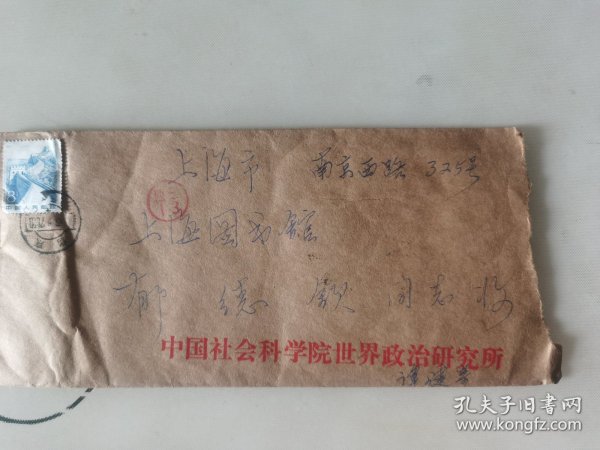 上海市 南京西路 325号
上海图书馆
郁 德 同志收
中国社会科学院世界政治研究所
中国人民邮政
孔夫子旧书网
www.kongfz.com